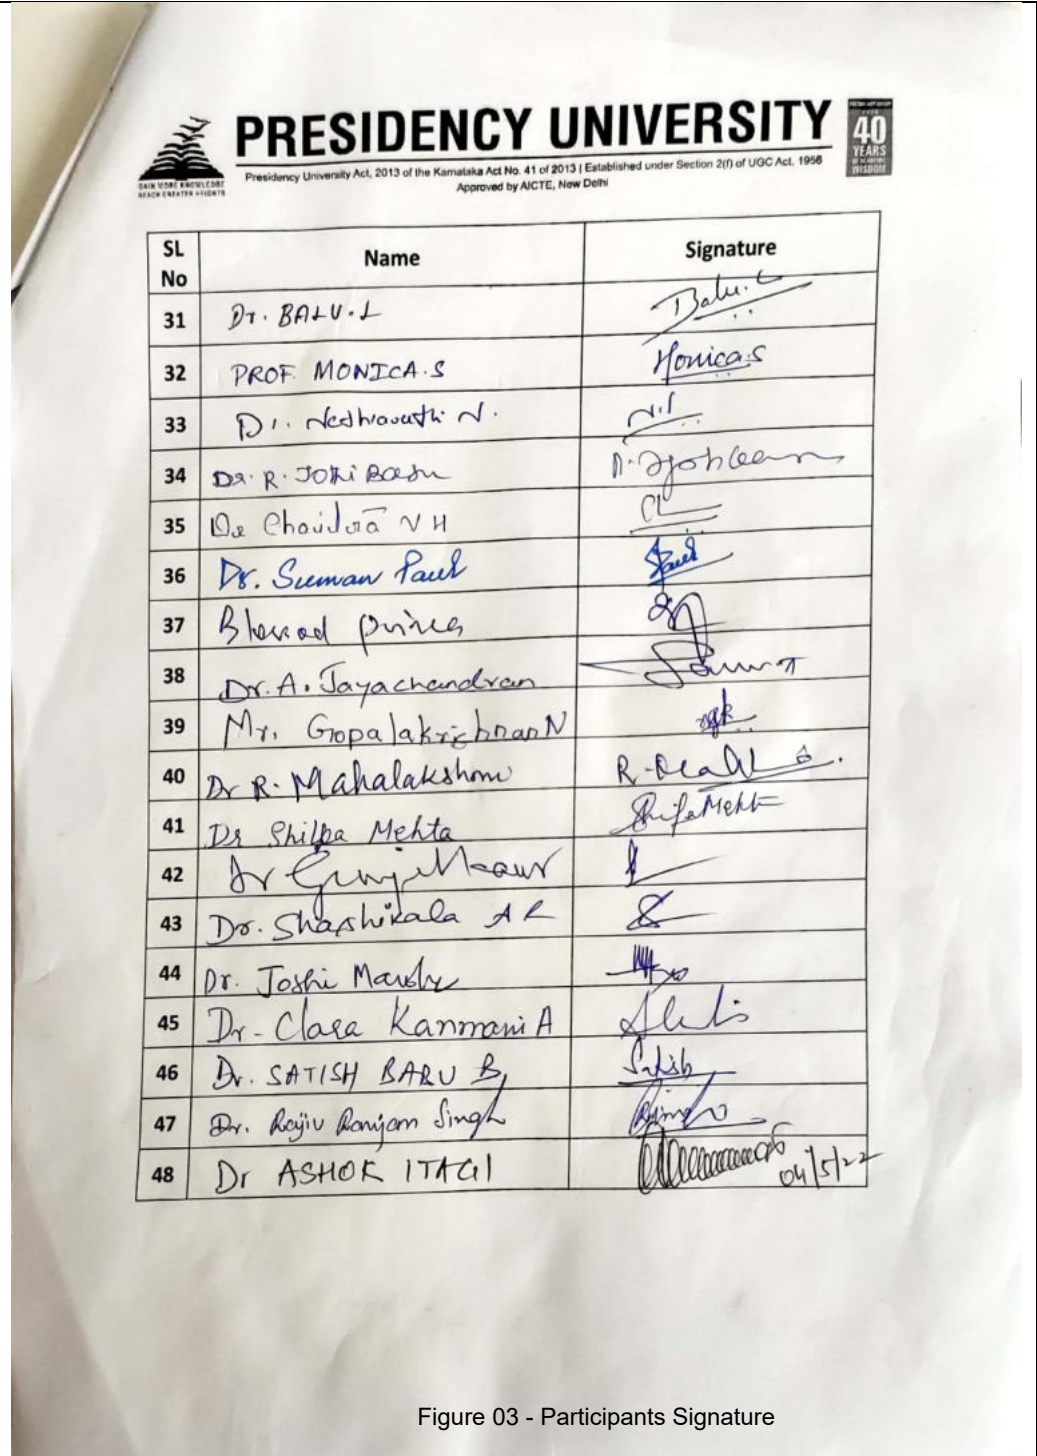 PRESIDENCY UNIVERSITY
GAIN MORE KNOWLEDGE
REACH GREATER HEIGHTS
Presidency University Act, 2013 of the Karnataka Act No. 41 of 2013 | Established under Section 2(f) of UGC Act. 1956
Approved by AICTE, New Delhi
40
YEARS
OF ACADEMIC
WISDOM
SL No Name Signature
31 Dr. BALU.L Balu.L
32 PROF. MONICA.S Monica.S
33 Dr. Nethravathi N.
34 Dr. R. JOTHI BASU
35 Dr Chandra V H
36 Dr. Suman Paul Paul
37 Blessed Prince
38 Dr. A. Jayachandran
39 Mr. Gopalakrishnan N
40 Dr R. Mahalakshmi
41 Dr Shilpa Mehta Shilpa Mehta
42 Dr
43 Dr. Shashikala A R
44 Dr. Joshi
45 Dr - Clara Kanmani A
46 Dr. SATISH BABU B Satish
47 Dr. Rajiv Ranjan Singh
48 Dr ASHOK ITAGI 04/5/22
Figure 03 - Participants Signature